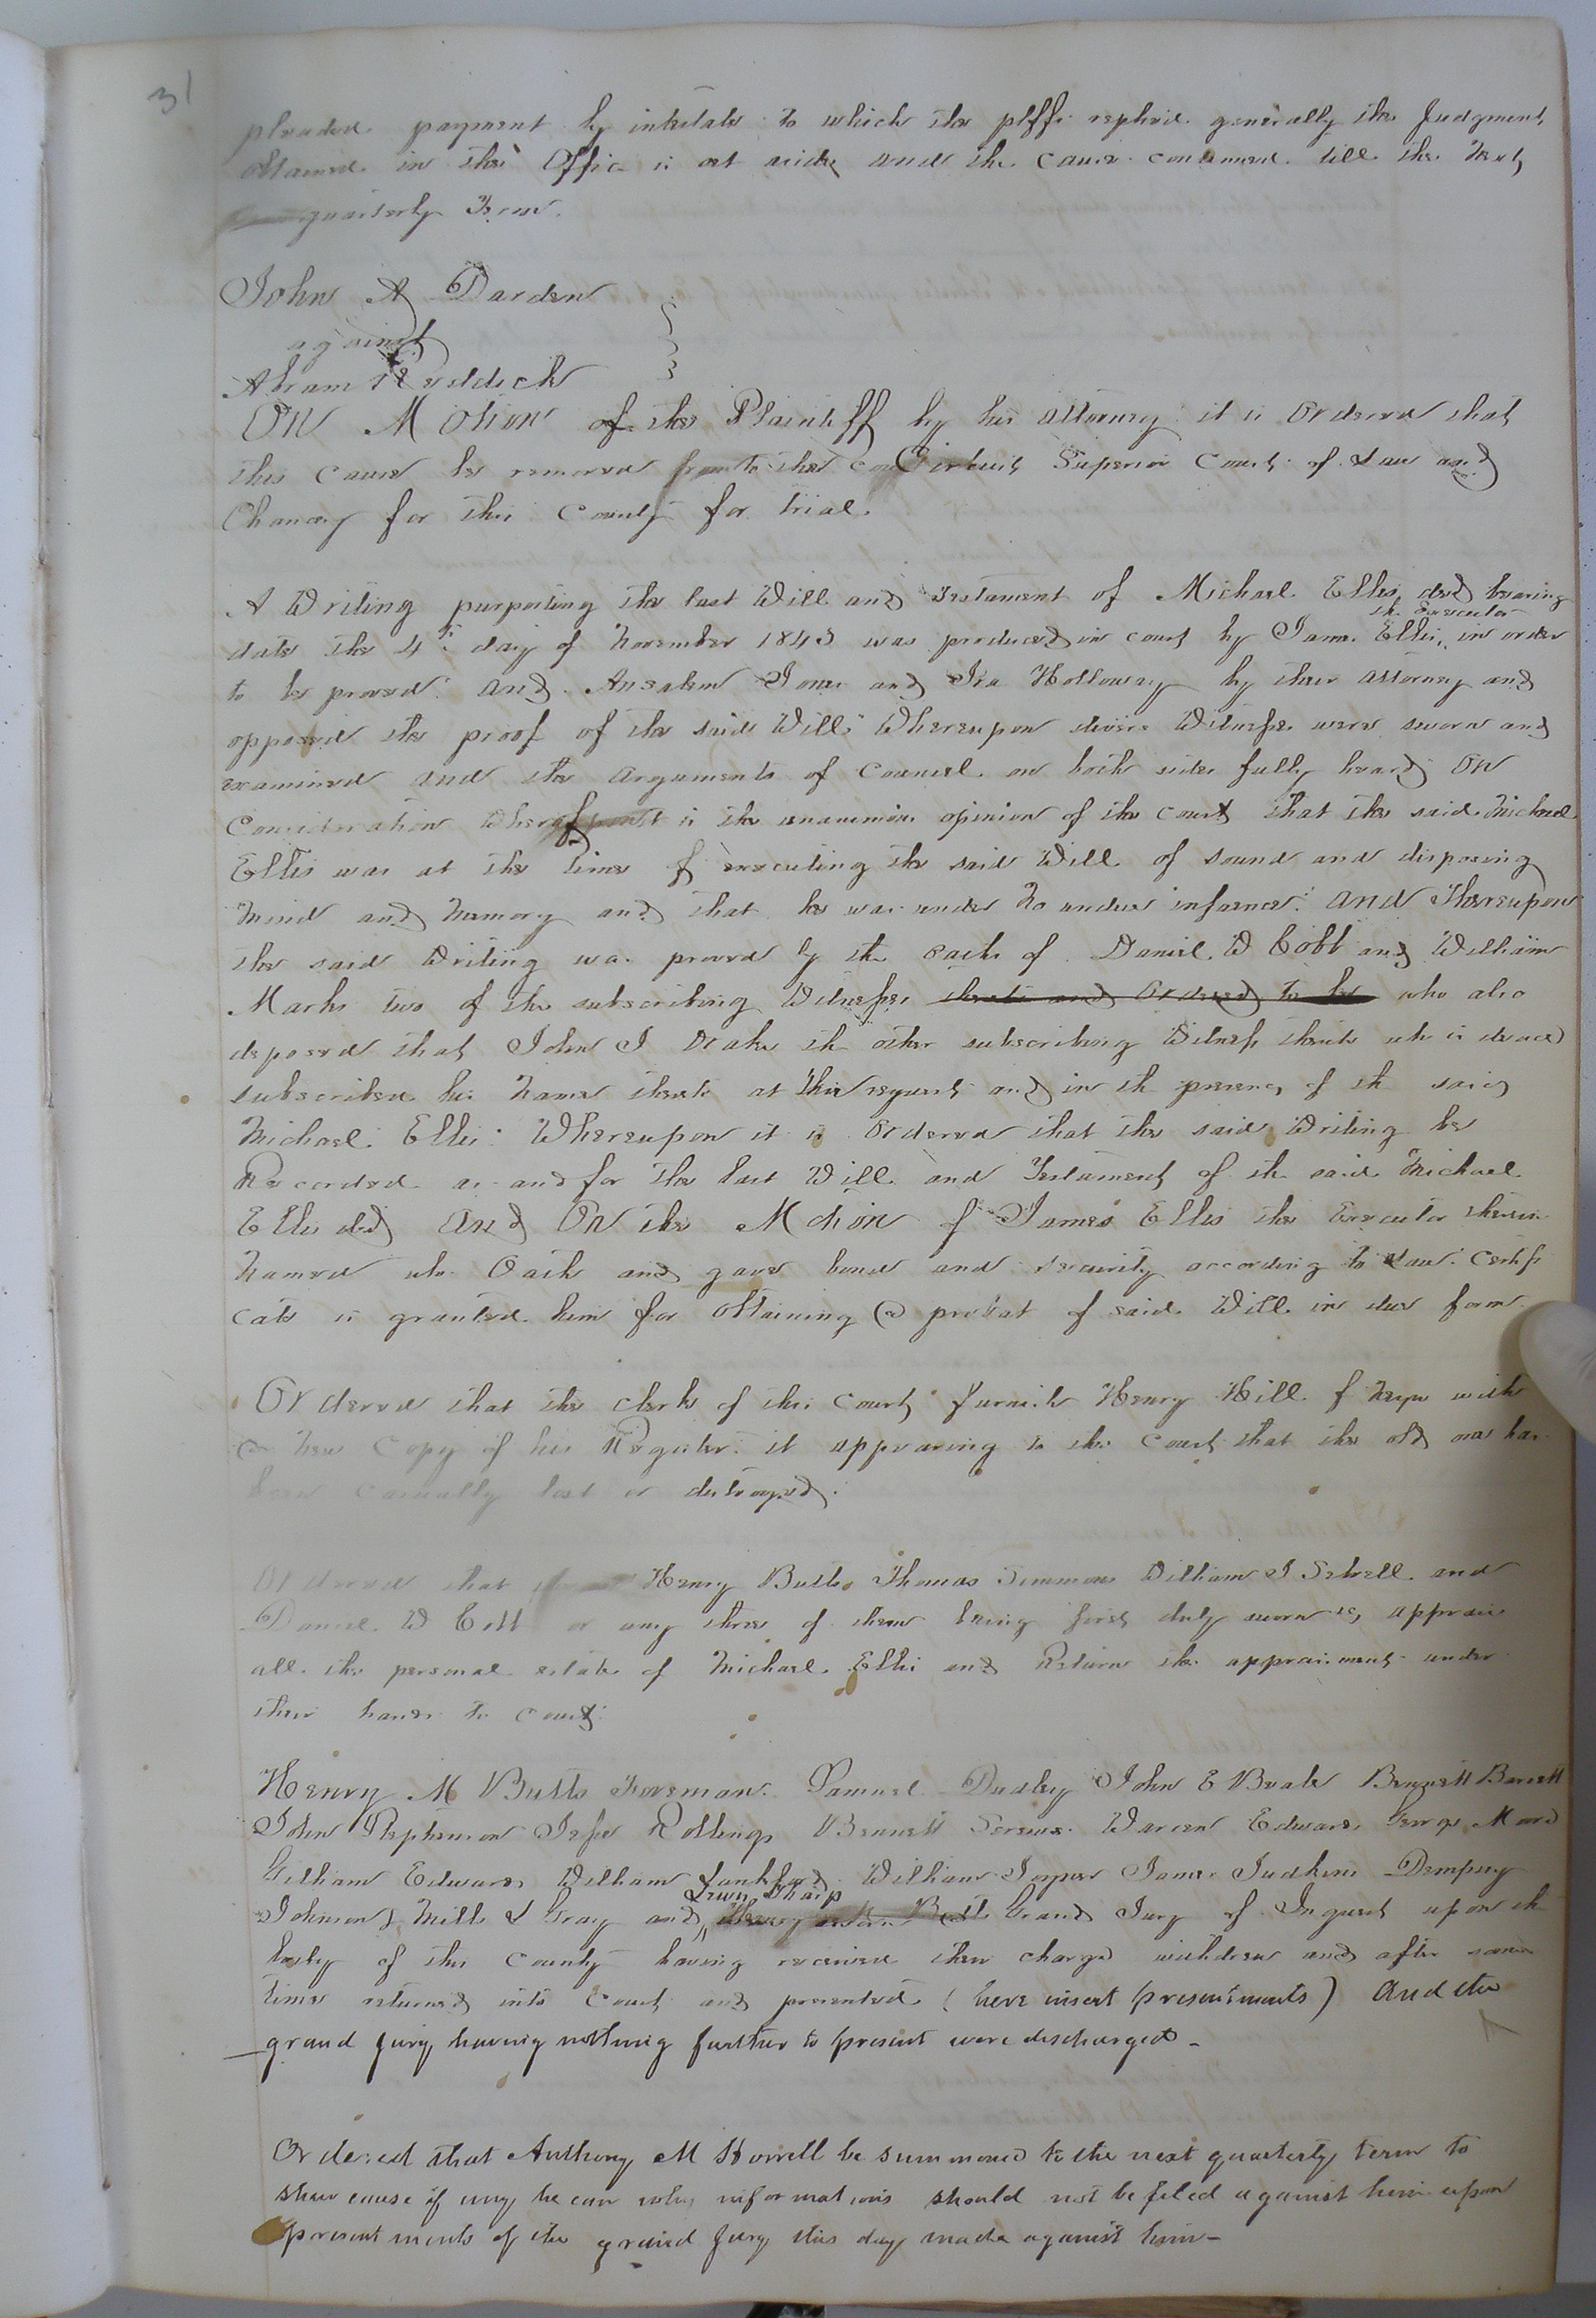 31
pleaded payment by intestate to which the plffs replied generally the Judgment
obtained in the Office is set aside and the cause continued till the next
quarterly Term.
John A Darden
against
Abram Riddick
On Motion of the Plaintiff by his attorney it is Ordered that
this cause be removed to the Circuit Superior Court of Law and
Chancery for this County for trial.
A Writing purporting the last Will and Testament of Michael Ellis decd bearing
the Executor
date the 4th day of November 1843 was produced in court by James Ellis, in order
to be proved. And Ansalem Jones and Ira Holloway by their attorney and
opposed the proof of the said Will: Whereupon divers Witnesses were sworn and
examined and the arguments of Councel on both sides fully heard On
Consideration Whereof it is the unanimous opinion of the court that the said Michael
Ellis was at the time of executing the said Will of sound and disposing
mind and memory and that he was under no undue infuence: And Thereupon
the said Writing was proved by the oaths of Daniel W Cobb and William
Marks two of the subscribing Witnesses thereto and Ordered to be who also
deposed that John J Drake the other subscribing Witness thereto who is dead
subscribed his name thereto at the request and in the presence of the said
Michael Ellis: Whereupon it is Ordered that the said Writing be
Recorded as and for the last Will and Testament of the said Michael
Ellis decd And On the Motion of James Ellis the Executor therein
named who Oath and gave bond and security according to Law. Certifi
cate is granted him for obtaining a probat of said Will in due form.
Ordered that the clerk of this Court furnish Henry Hill f Negro with
a new Copy of his Register it appearing to the Court that the old one has
been casually lost or destroyed.
Ordered that Henry Butts Thomas Simmons William J Sebrell and
Daniel W Cobb or any three of them being first duly sworn do appraise
all the personal estate of Michael Ellis and Return the appraisement under
their hands to court:
Henry M Butts Foreman. Samuel Dudley John E Beale Bennett Barrett
John Stephenson Jesse Rollings Bennett Screws Warren Edwards George Moore
Gilliam Edwards William Lankford William Joyner James Judkins Dempsey
Lewis Tharp
Johnson J Mills L Gray and Grand Jury of Inquest upon the
body of this County having received their charge withdrew and after some
time returned into Court and presented (here insert presentments) And the
grand jury having nothing further to present were discharged -
Ordered that Anthony M Howell be summoned to the next quarterly term to
shew cause if any he can why informations should not be filed against him upon
presentments of the grand jury this day made against him -